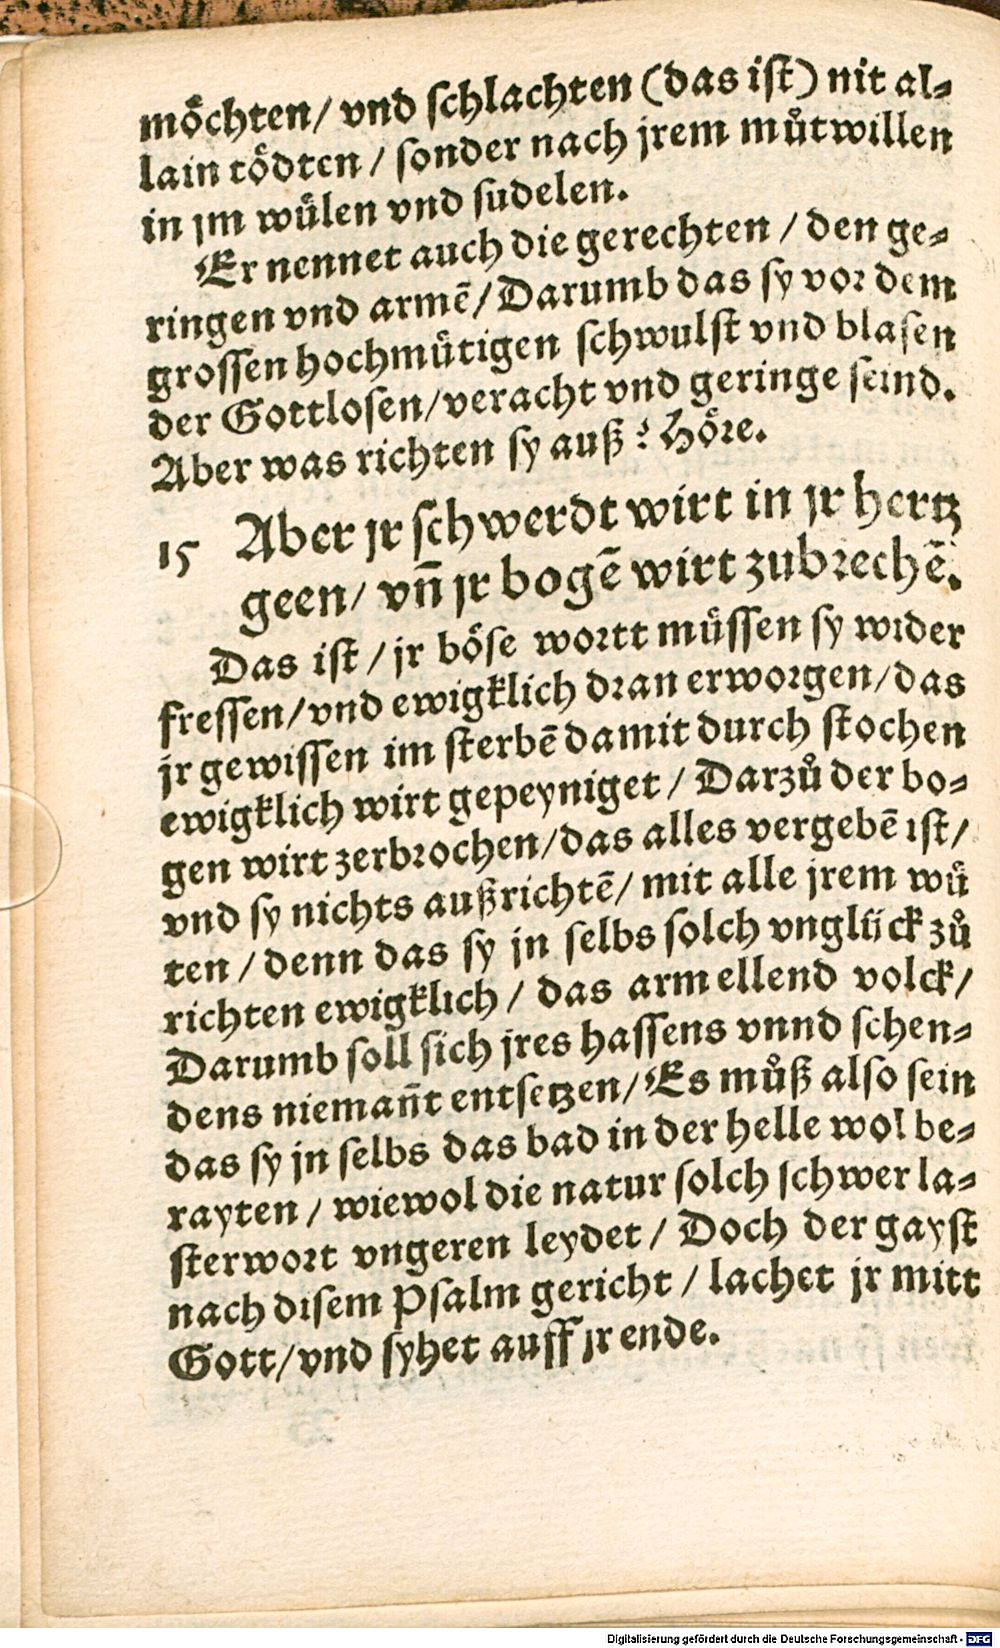 moͤchten/ vnd ſchlachten (das iſt) nit al⸗
lain toͤdten / ſonder nach jrem muͦtwillen
in jm wuͤlen vnd ſudelen.
Er nennet auch die gerechten / den ge⸗
ringen vnd armē/ Darumb das ſy voꝛ dem
groſſen hochmuͤtigen ſchwulſt vnd blaſen
der Gottloſen/ veracht vnd geringe ſeind.
Aber was richten ſy auß? Hoͤꝛe.
15 Aber jr ſchwerdt wirt in jr hertz
geen/ vn̄ jr bogē wirt zubꝛechē.
Das iſt / jr boͤſe woꝛtt muͤſſen ſy wider
freſſen/ vnd ewigklich dꝛan erwoꝛgen/ das
jr gewiſſen im ſterbē damit durch ſtochen
ewigklich wirt gepeyniget / Darzuͦ der bo⸗
gen wirt zerbꝛochen/ das alles vergebē iſt/
vnd ſy nichts außrichtē/ mit alle jrem wuͤ
ten / denn das ſy jn ſelbs ſolch vngluͤck zuͦ
richten ewigklich / das arm ellend volck/
Darumb ſoll ſich jres haſſens vnnd ſchen⸗
dens nieman̄t entſetzen/ Es muͦß alſo ſein
das ſy jn ſelbs das bad in der helle wol be⸗
rayten / wiewol die natur ſolch ſchwer la⸗
ſterwoꝛt vngeren leydet / Doch der gayſt
nach diſem Pſalm gericht / lachet jr mitt
Gott/ vnd ſyhet auff jr ende.
Digitalisierung gefördert durch die Deutsche Forschungsgemeinschaft - DFG